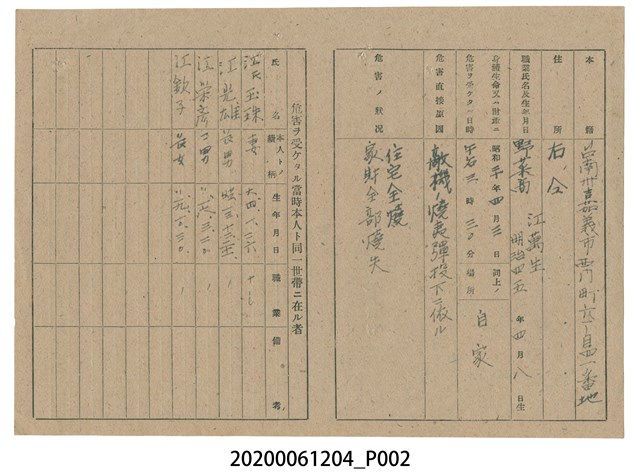 本籍 台南州嘉義市西門町六丁目四一番地
住所 右仝
職業氏名及生年月日 野菜商 江萬生 明治四五年四月八日生
身體生命又ハ財産ニ危害ヲ受ケタル日時 昭和二十年四月三日 午后三時三〇分
同上ノ場所 自家
危害直接原因 敵機ノ燒夷彈投下ニ依ル
危害ノ狀況 住宅全燒
家財全部燒失
危害ヲ受ケタル當時本人ト同一世帶ニ在ル者
氏名 本人トノ續柄 生年月日 職業 備考
江氏玉珠 妻 大四、八、二六
江光雄 長男
江榮彥 二男
江欽子 長女
20200061204_P002